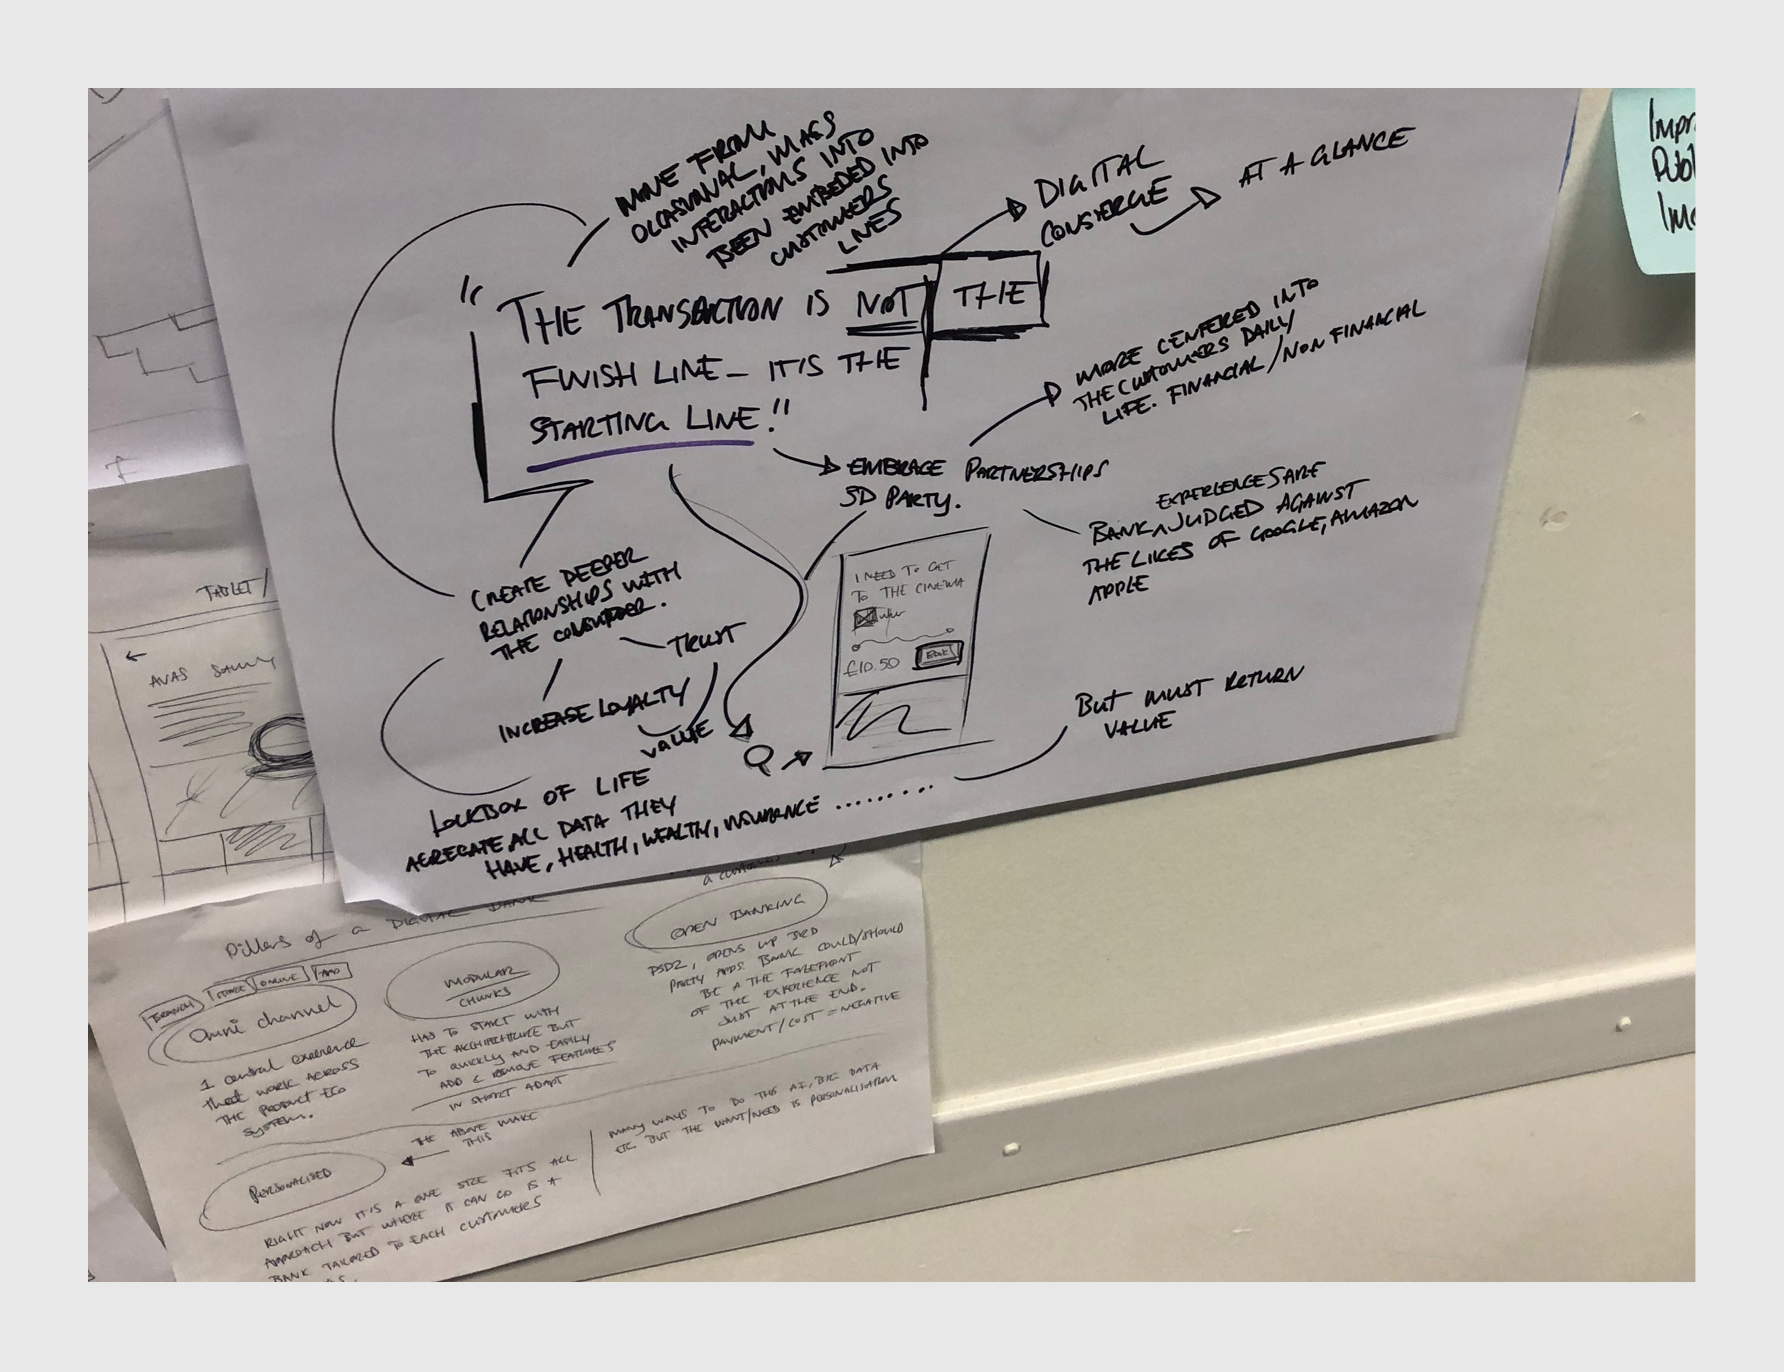 MOVE FROM
OCCASIONAL, MASS
INTERACTIONS INTO
BEEN EMBEDED INTO
CUSTOMERS
LIVES
DIGITAL
CONSIERGE
AT A GLANCE
"THE TRANSACTION IS NOT THE
FINISH LINE - IT'S THE
STARTING LINE!"
MORE CENTERED INTO
THE CUSTOMERS DAILY
LIFE. FINANCIAL/NON FINANCIAL
EMBRACE PARTNERSHIPS
3D PARTY.
EXPERIENCES ARE
BANK ^ JUDGED AGAINST
THE LIKES OF GOOGLE, AMAZON
APPLE
CREATE DEEPER
RELATIONSHIPS WITH
THE CONSUMER.
TRUST
INCREASE LOYALTY
VALUE
I NEED TO GET
TO THE CINEMA
£10.50
BOOK
BUT MUST RETURN
VALUE
LOCKBOX OF LIFE
AGREGATE ALL DATA THEY
HAVE, HEALTH, WEALTH, INSURANCE .........
Impr
Publ
TABLET/
AVAS
Pillers of a DIGITAL BANK
BRANCH
STORE
ONLINE
APP
Omni channel
1 central experience
that work ACROSS
THE PRODUCT ECO
SYSTEM.
MODULAR
CHUNKS
HAS TO START WITH
THE ARCHITECTURE BUT
TO QUICKLY AND EASILY
ADD & REMOVE FEATURES
IN SHORT ADAPT
a customers
OPEN BANKING
PSD2, OPENS UP 3RD
PARTY APPS. BANK COULD/SHOULD
BE A THE FOREFRONT
OF THE EXPERIENCE NOT
JUST AT THE END.
PAYMENT/COST = NEGATIVE
THE ABOVE MAKE
THIS
PERSONALISED
RIGHT NOW IT'S A ONE SIZE FITS ALL
APPROACH BUT WHERE IT CAN GO IS A
BANK TAILORED TO EACH CUSTOMERS
MANY WAYS TO DO THIS AI, BIG DATA
ETC BUT THE WANT/NEED IS PERSONALISATION